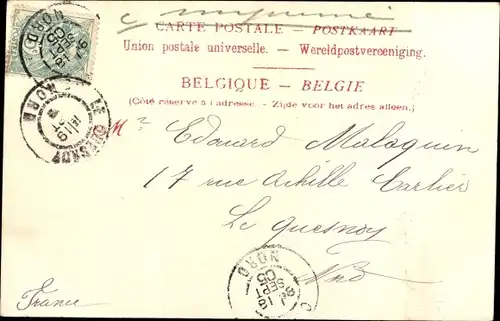 imprimé
CARTE POSTALE — POSTKAART
Union postale universelle. — Wereldpostvereeniging.
BELGIQUE - BELGIE
(Côté réservé à l'adresse. - Zijde voor het adres alleen.)
Mr Edouard Malaquin
17 rue Achille Carlier
Le Quesnoy
Nord
France
NORD